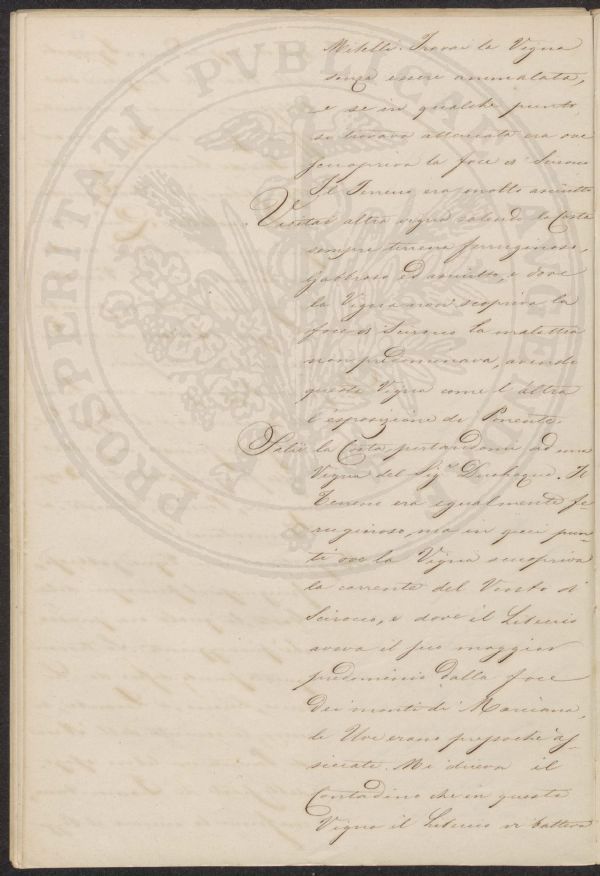 Mitelli. Trovai la Vigna
senza essere ammalata,
e se in qualche punto
si trovava attaccata era ove
scuopriva la foce di Scirocco
Il Terreno era molto asciutto
Visitai altra vigna salendo la Costa
sempre terreno ferruginoso,
Gabbroso ed asciutto, e dove
la Vigna non scopriva la
foce di Scirocco la malattia
non predominava, avendo
questa Vigna come l'altra
l'esposizione di Ponente.
Salii la Costa portandomi ad una
Vigna del Sig.r Il
Terreno era egualmente fe-
ruginoso, ma in quei pun-
ti ove la Vigna scuopriva
la corrente del Vento di
Scirocco, e dove il Libeccio
aveva il suo maggior
predominio dalla foce
dei monti di Marciana,
le Uve erano pressoché af-
Mi diceva il
Contadino che in questa
Vigna il Libeccio vi batteva
PROSPERITATI PVBLICAE AVGENDAE